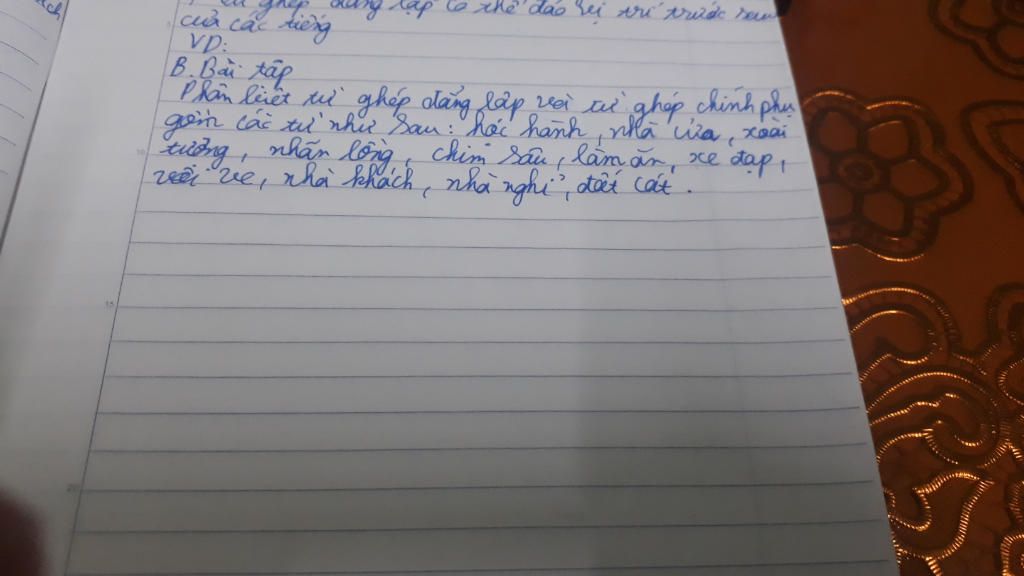 từ ghép đẳng lập có thể đảo vị trí trước sau
của các tiếng
VD:
B. Bài tập
Phân biệt từ ghép đẳng lập với từ ghép chính phụ
gồm các từ như sau: học hành, nhà cửa, xoài
tượng, nhãn lồng, chim sâu, làm ăn, xe đạp,
vôi ve, nhà khách, nhà nghỉ, đất cát.